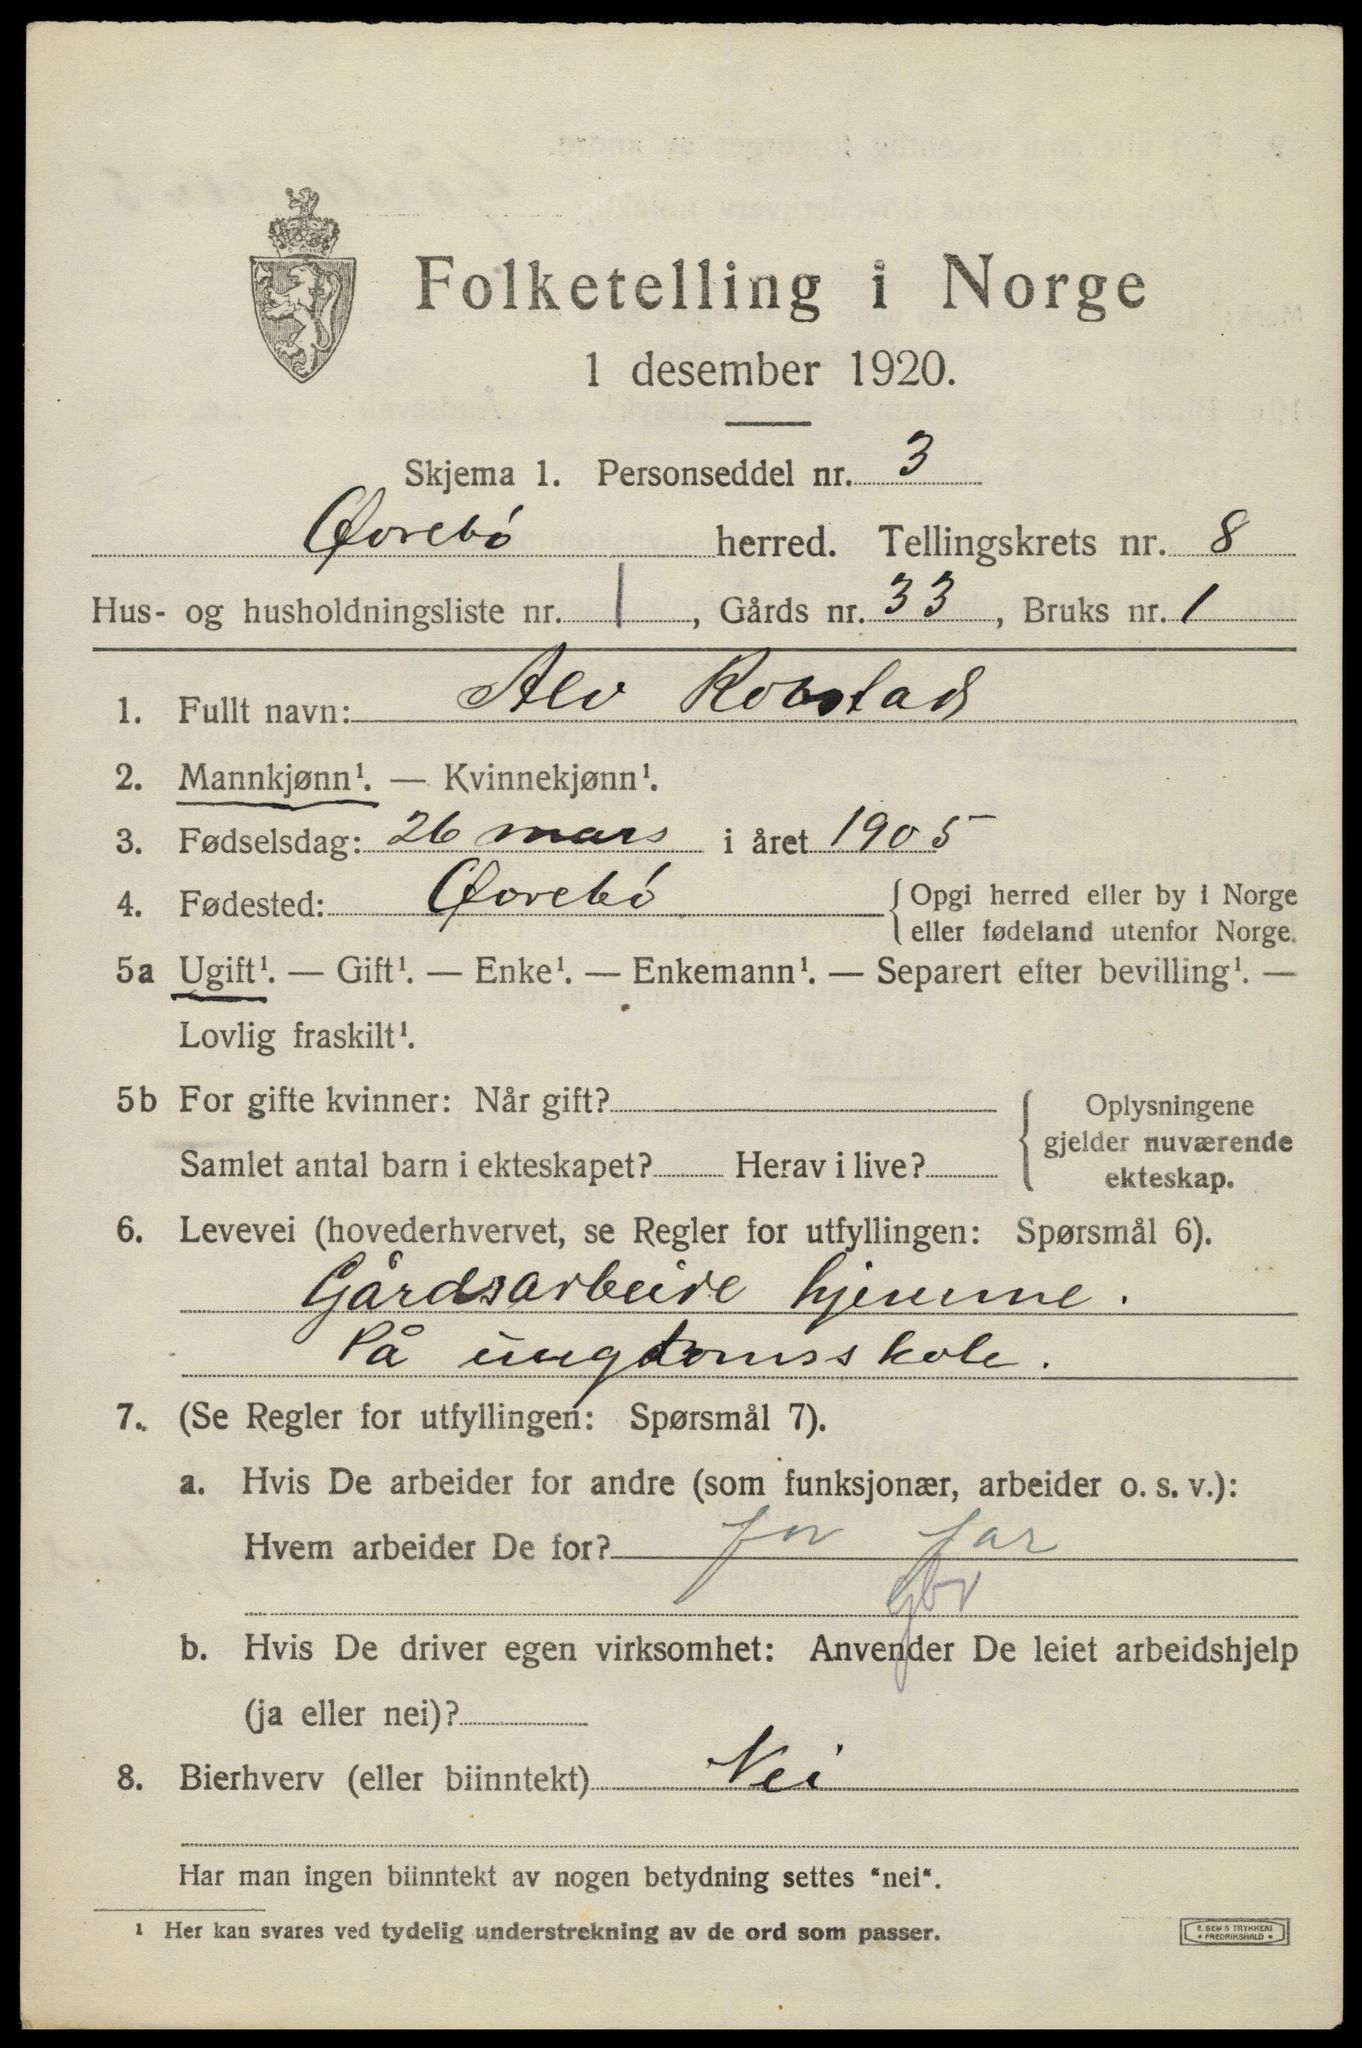 Folketelling i Norge
1 desember 1920.
Skjema 1. Personseddel nr. 3
Øvrebó herred. Tellingskrets nr. 8
Hus- og husholdningsliste nr. 1, Gårds nr. 33, Bruks nr. 1
1. Fullt navn: Alv Robstad
2. Mannkjønn¹. — Kvinnekjønn¹.
3. Fødselsdag: 26 mars i året 1905
4. Fødested: Øvrebó { Opgi herred eller by i Norge
eller fødeland utenfor Norge.
5a Ugift¹. — Gift¹. — Enke¹. — Enkemann¹. — Separert efter bevilling¹. —
Lovlig fraskilt¹.
5b For gifte kvinner: Når gift? { Oplysningene
gjelder nuværende
Samlet antal barn i ekteskapet? Herav i live? ekteskap.
6. Levevei (hovederhvervet, se Regler for utfyllingen: Spørsmål 6).
Gårdsarbeide hjemme.
På ungdomsskole.
7. (Se Regler for utfyllingen: Spørsmål 7).
a. Hvis De arbeider for andre (som funksjonær, arbeider o. s. v.):
Hvem arbeider De for? for far
gbr
b. Hvis De driver egen virksomhet: Anvender De leiet arbeidshjelp
(ja eller nei)?
8. Bierhverv (eller biinntekt) Nei
Har man ingen biinntekt av nogen betydning settes "nei".
¹ Her kan svares ved tydelig understrekning av de ord som passer.
E. SEM'S TRYKKERI
• FREDRIKSHALD •